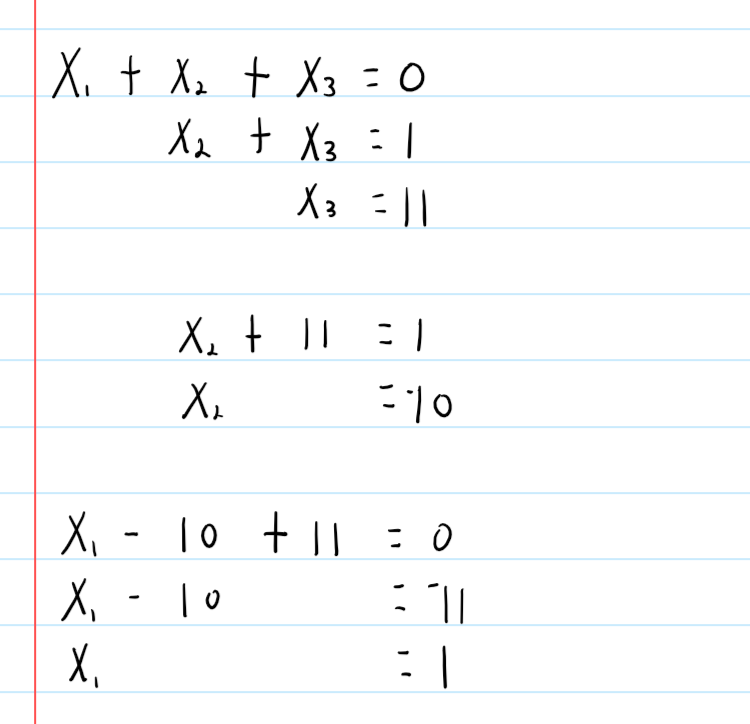 X₁ + X₂ + X₃ = 0
X₂ + X₃ = 1
X₃ = 11
X₂ + 11 = 1
X₂ = -10
X₁ - 10 + 11 = 0
X₁ - 10 = -11
X₁ = 1